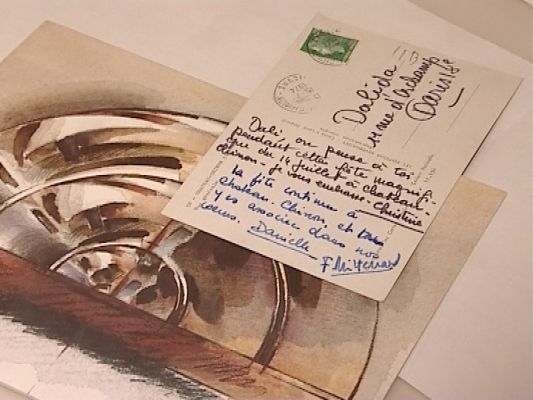 Dalida
rue d'Orchampt
Paris 18e
Dali, on pense à toi
pendant cette fête magnifi-
que du 14 Juillet à château-
chinon - je vous embrasse. Christine
la fête continue à
chateau. Chinon, et tu
y es associée dans nos
coeurs. Danielle
F. Mitterrand